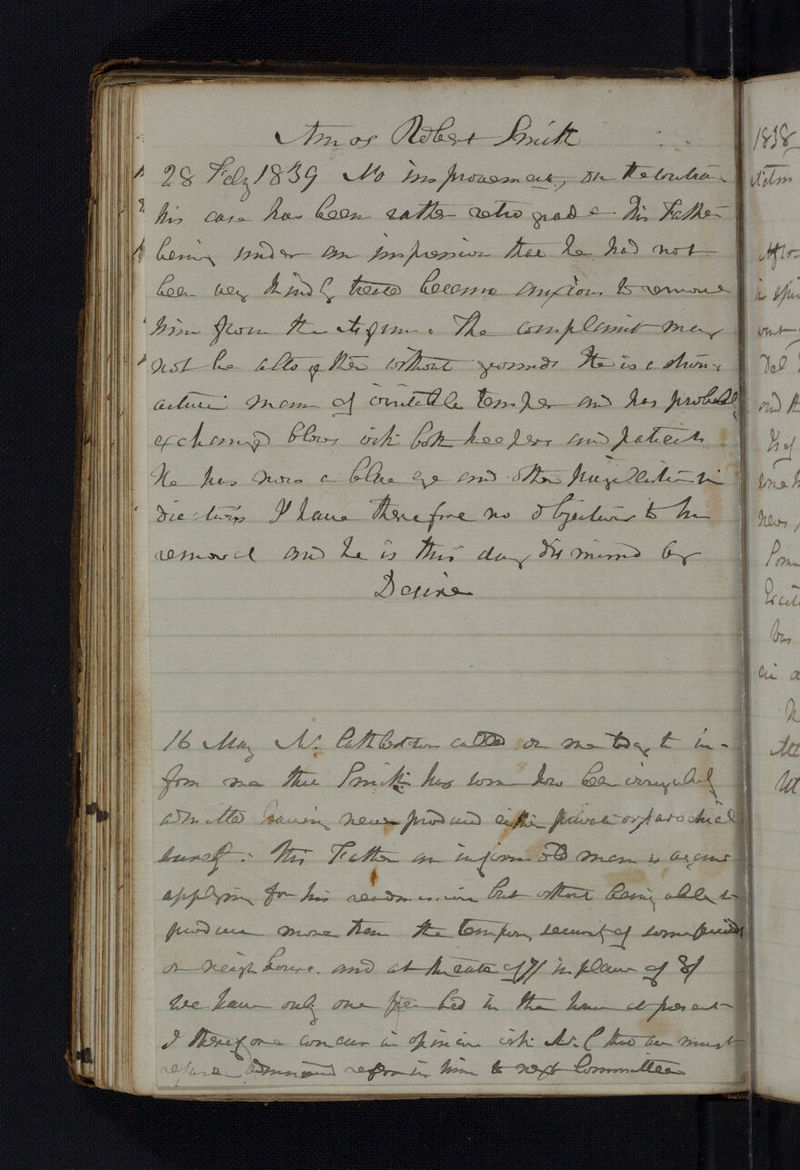 Amos Robert Smith
28 Feby 1839 No improvement, on the contrary
his case has been rather retrograde. His Father
being under an impression that he had not
been very kindly treated became anxious to remove
him from the Asylum. The complaint may
not be altogether without grounds He is a strong
active man of irritable temper and has probably
exchanged blows with both keepers and patients
He has now a blue eye and other
I have therefore no objections to his
removal and he is this day dismissed by
Desire
16 May Mr. called on me today to in-
form me that Smith has some how been irregularly
admitted having never produced either private or parochial
His Father an infirm old man is again
applying for his readmission but without being able to
produce more than the security of some friend
or neighbour. and at the rate of 7/ in place of 8/
We have only one free bed in the house at present
I therefore concur in opinion with Mr. C that we must
refuse him to next Committee
1838